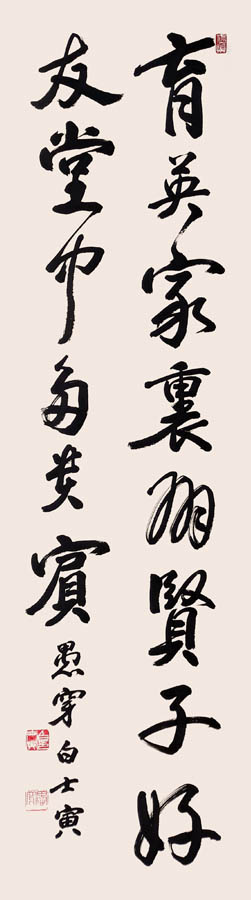 育英家裏朋賢子好
友堂中多貴賓
愚穿白士寅